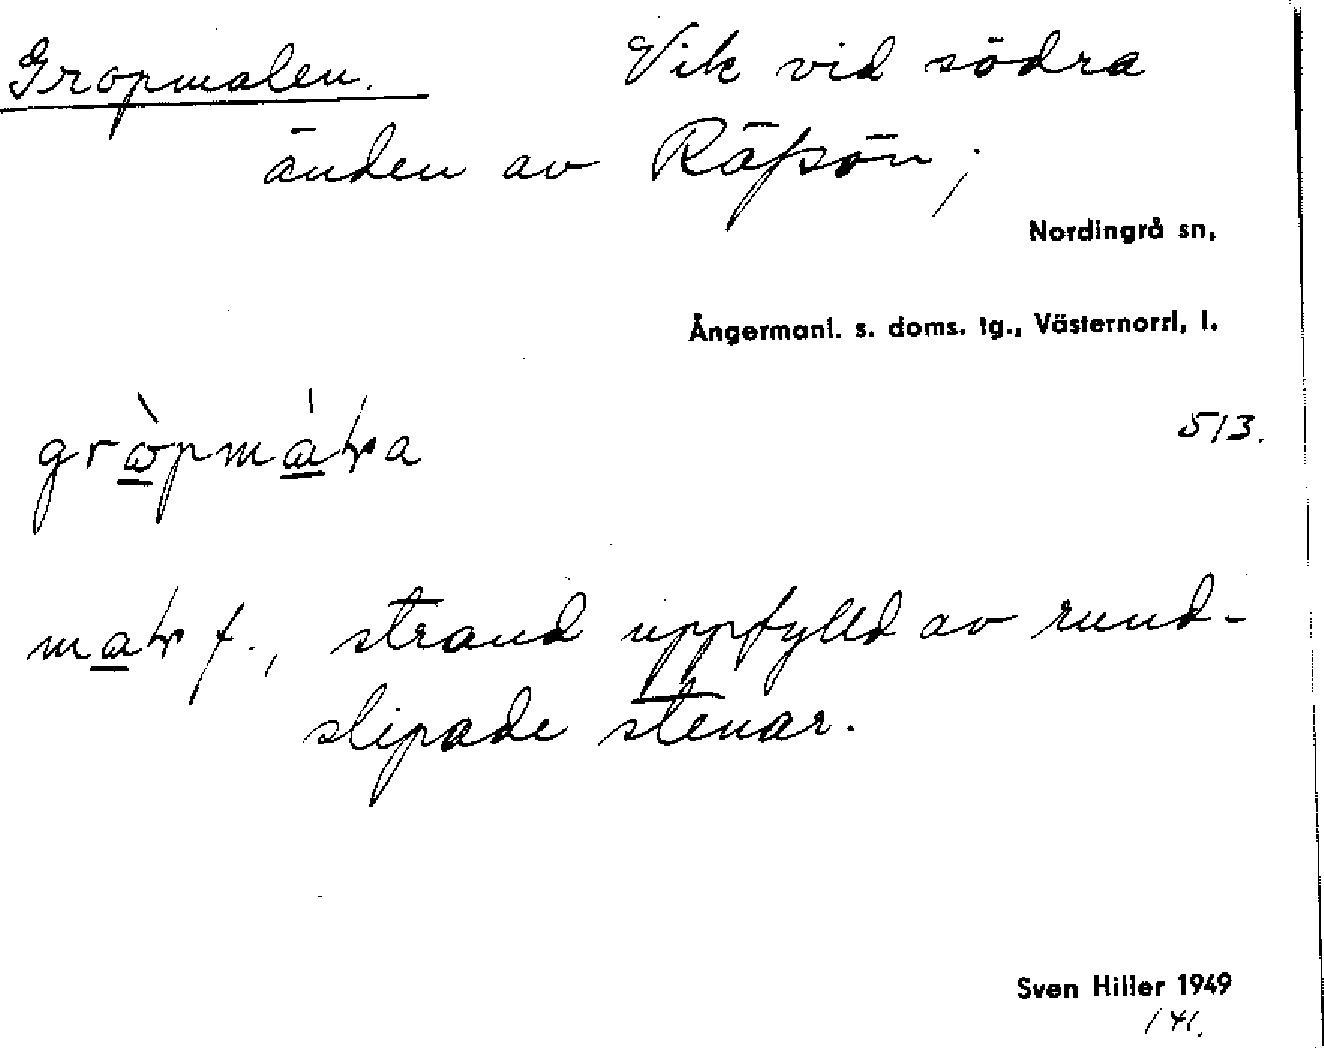 Gropmalen. Vik vid södra
änden av Räpsön;
Nordingrå sn,
Ångermanl. s. doms. tg., Västernorrl, l.
513.
mal f., strand uppfylld av rund-
slipade stenar.
Sven Hiller 1949
141.